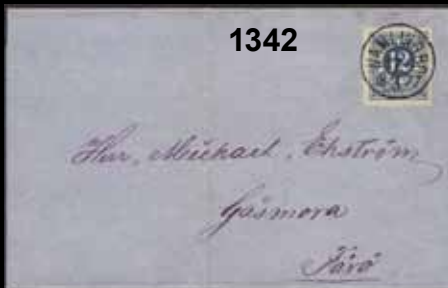 1342
12
Herr, Michael, Ekström
Gåsmora
Fårö